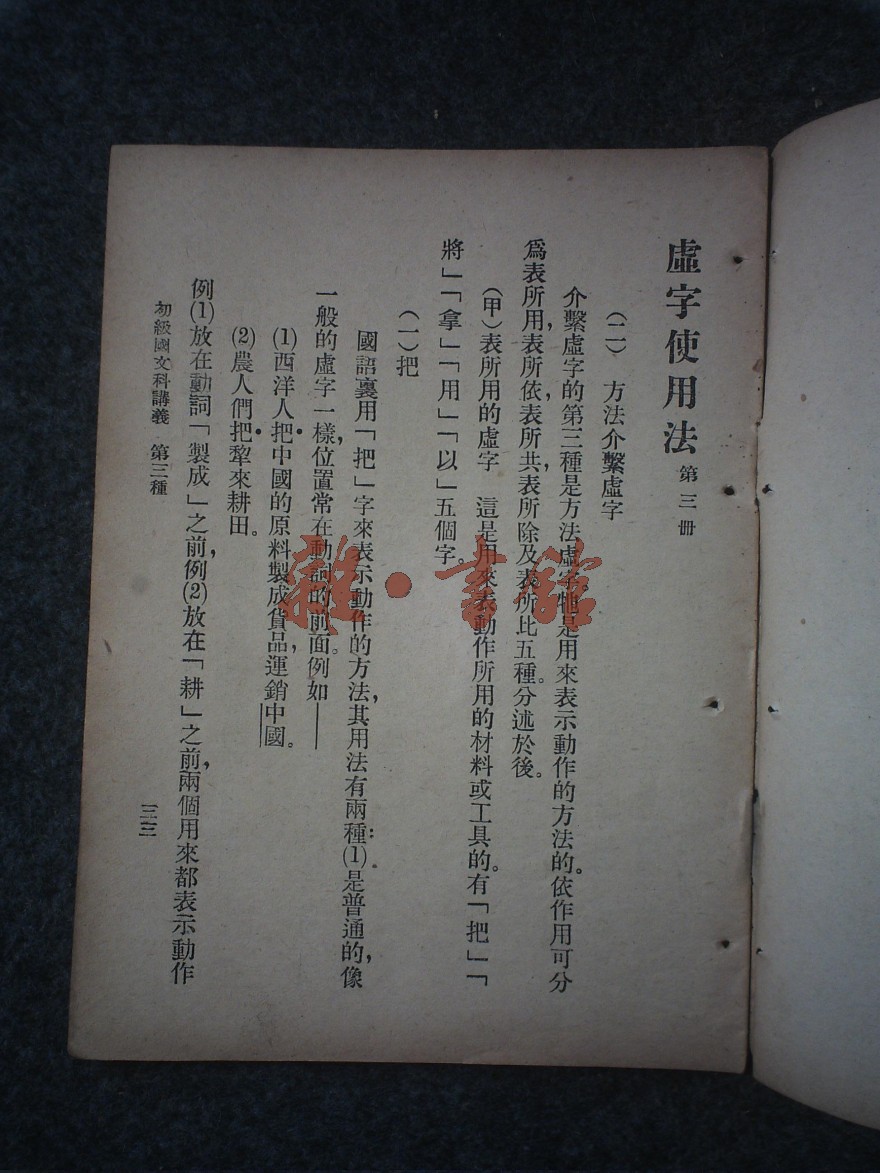 虛字使用法 第三册
(二) 方法介繫虛字
介繫虛字的第三種是方法虛字。牠是用來表示動作的方法的。依作用可分
爲表所用,表所依,表所共,表所除及表所比五種。分述於後。
(甲)表所用的虛字 這是用來表動作所用的材料或工具的。有「把」「
將」「拿」「用」「以」五個字。
(一)把
國語裏用「把」字來表示動作的方法,其用法有兩種:(1)是普通的,像
一般的虛字一樣,位置常在動詞的前面。例如——
(1)西洋人把中國的原料製成貨品,運銷中國。
(2)農人們把犂來耕田。
例(1)放在動詞「製成」之前,例(2)放在「耕」之前,兩個用來都表示動作
初級國文科講義 第三種
三三
雜·書館